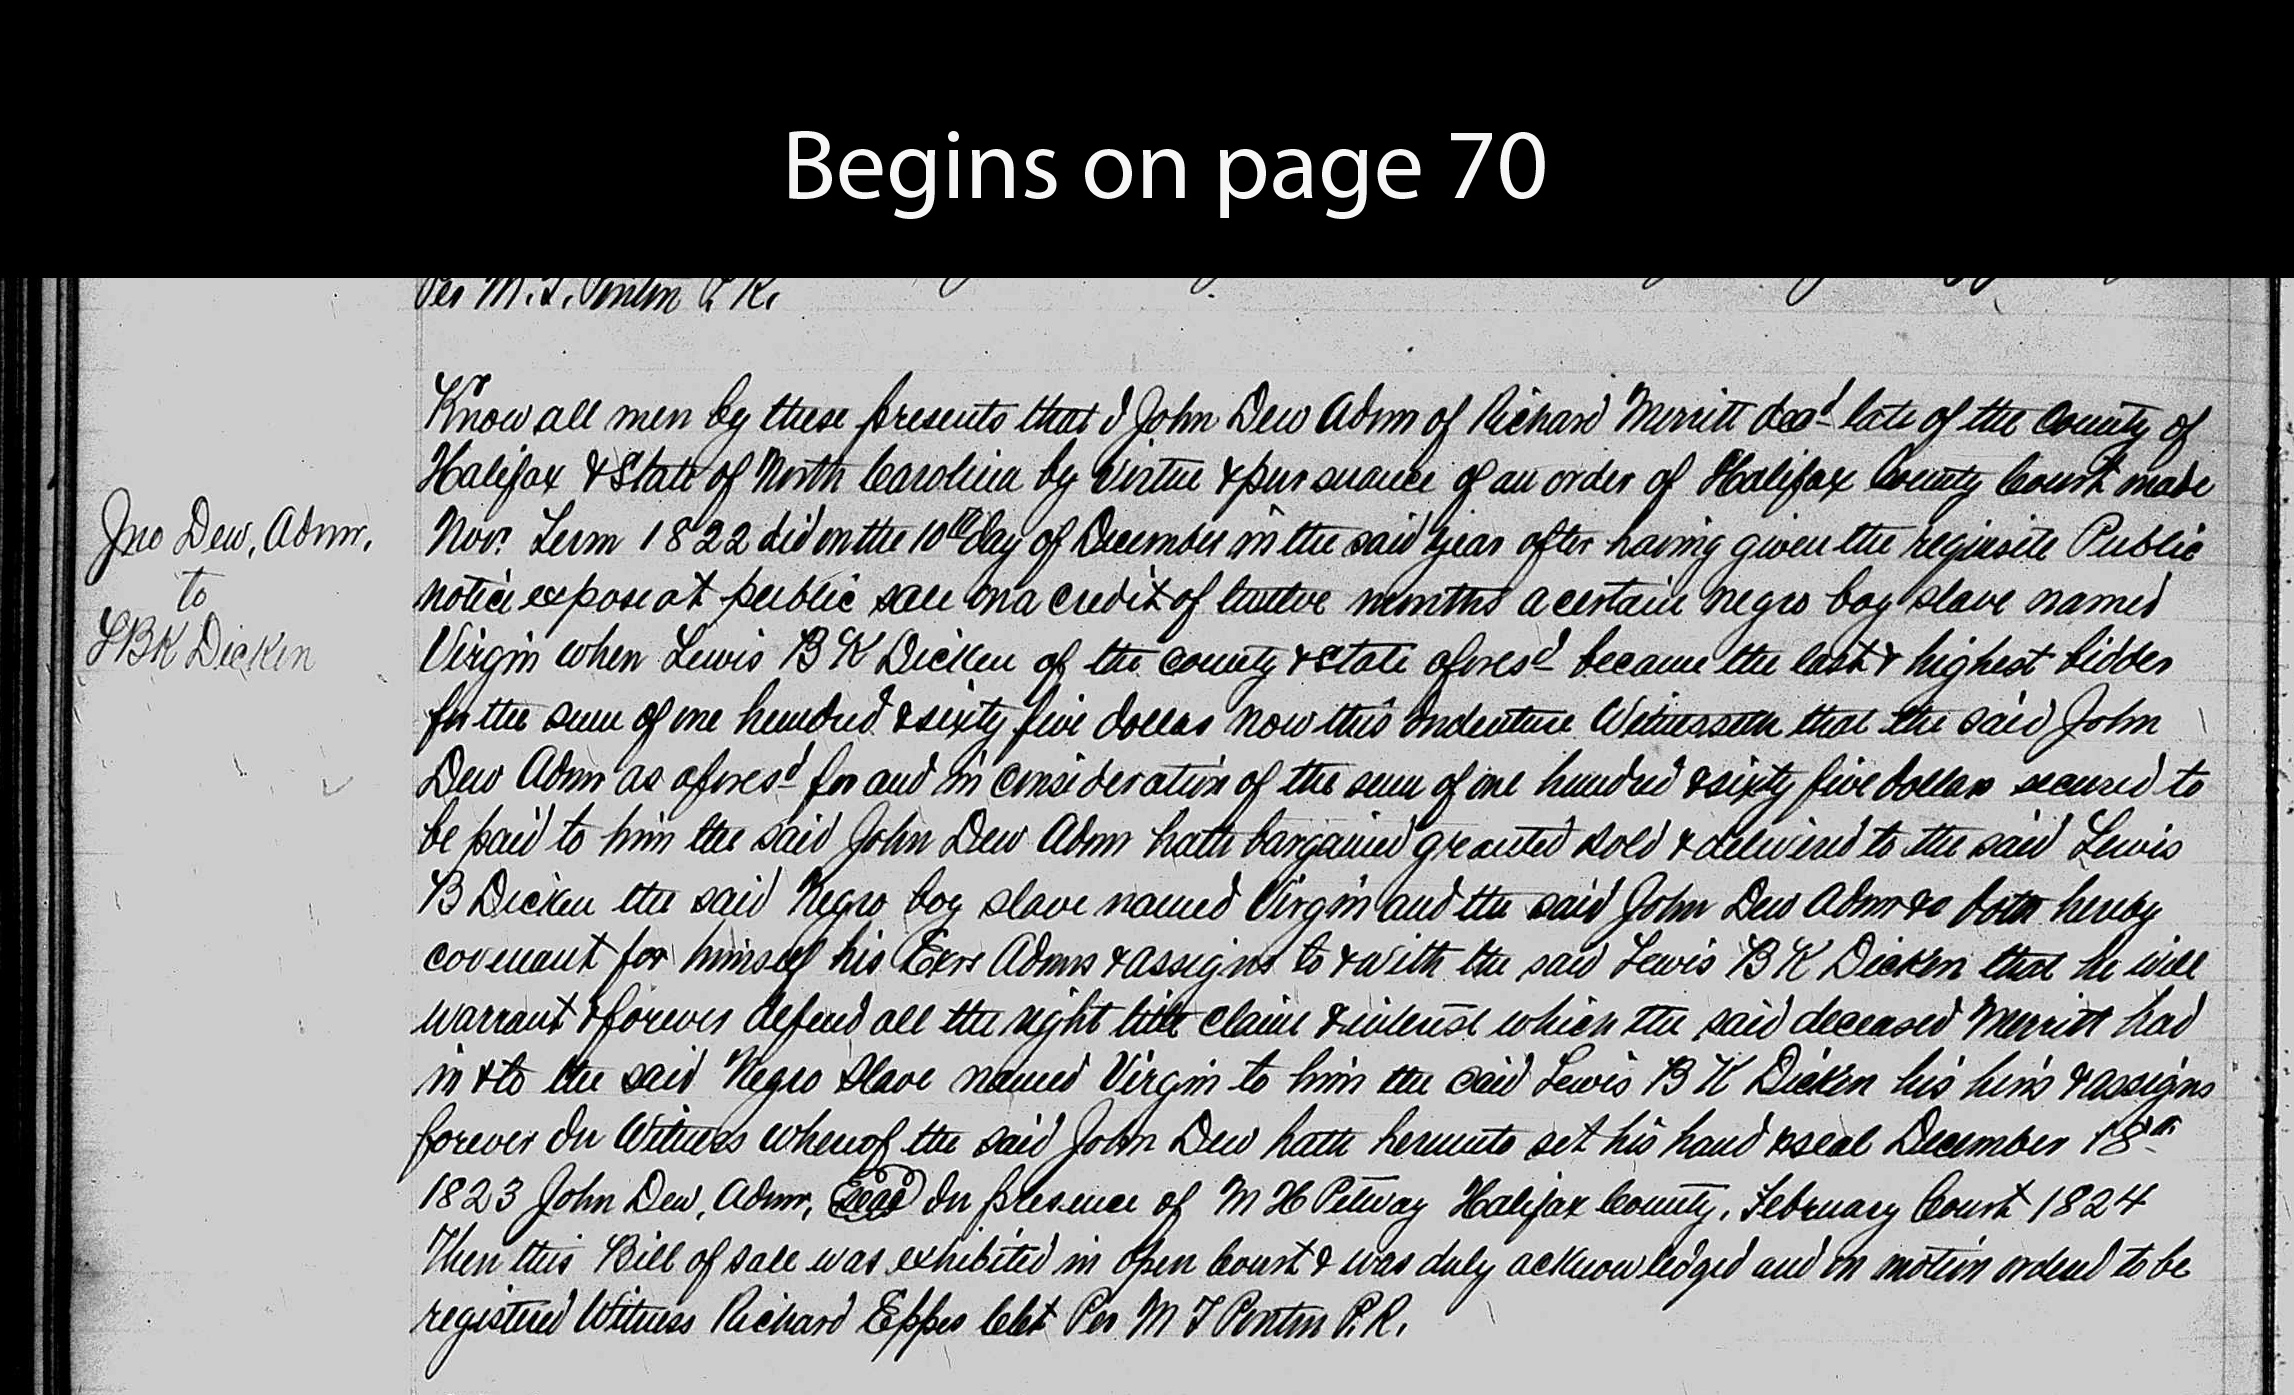 Begins on page 70
Per M. T. Ponton P. R.
Know all men by these presents that I John Dew Admr of Richard Merritt decd late of the County of
Halifax & State of North Carolina by Virtue & pursuance of an order of Halifax County Court made
Nov. Term 1822 did on the 10th day of December in the said year after having given the requisite Public
notice expose at public sale on a credit of twelve months a certain negro boy slave named
Virgin when Lewis B K Dicken of the county & state aforesd became the last & highest bidder
for the sum of one hundred & sixty five dollars now this Indenture Witnesseth that the said John
Dew Admr as aforesd for and in consideration of the sum of one hundred & sixty five dollars secured to
be paid to him the said John Dew Admr hath bargained granted sold & delivered to the said Lewis
B Dicken the said Negro boy slave named Virgin and the said John Dew Admr &c doth hereby
covenant for himself his Exrs Admrs & assigns to & with the said Lewis B K Dicken that he will
warrant & forever defend all the right title claim & interest which the said deceased Merritt had
in & to the said Negro Slave named Virgin to him the said Lewis B K Dicken his heirs & assigns
forever In Witness whereof the said John Dew hath hereunto set his hand & seal December 18th
1823 John Dew, Admr, Seal In presence of M H Pettway Halifax County, February Court 1824
Then this Bill of sale was exhibited in Open Court & was duly acknowledged and on motion ordered to be
registered Witness Richard Eppes Clk Per M T Ponton P. R.
Jno Dew, Admr,
to
L B K Dicken